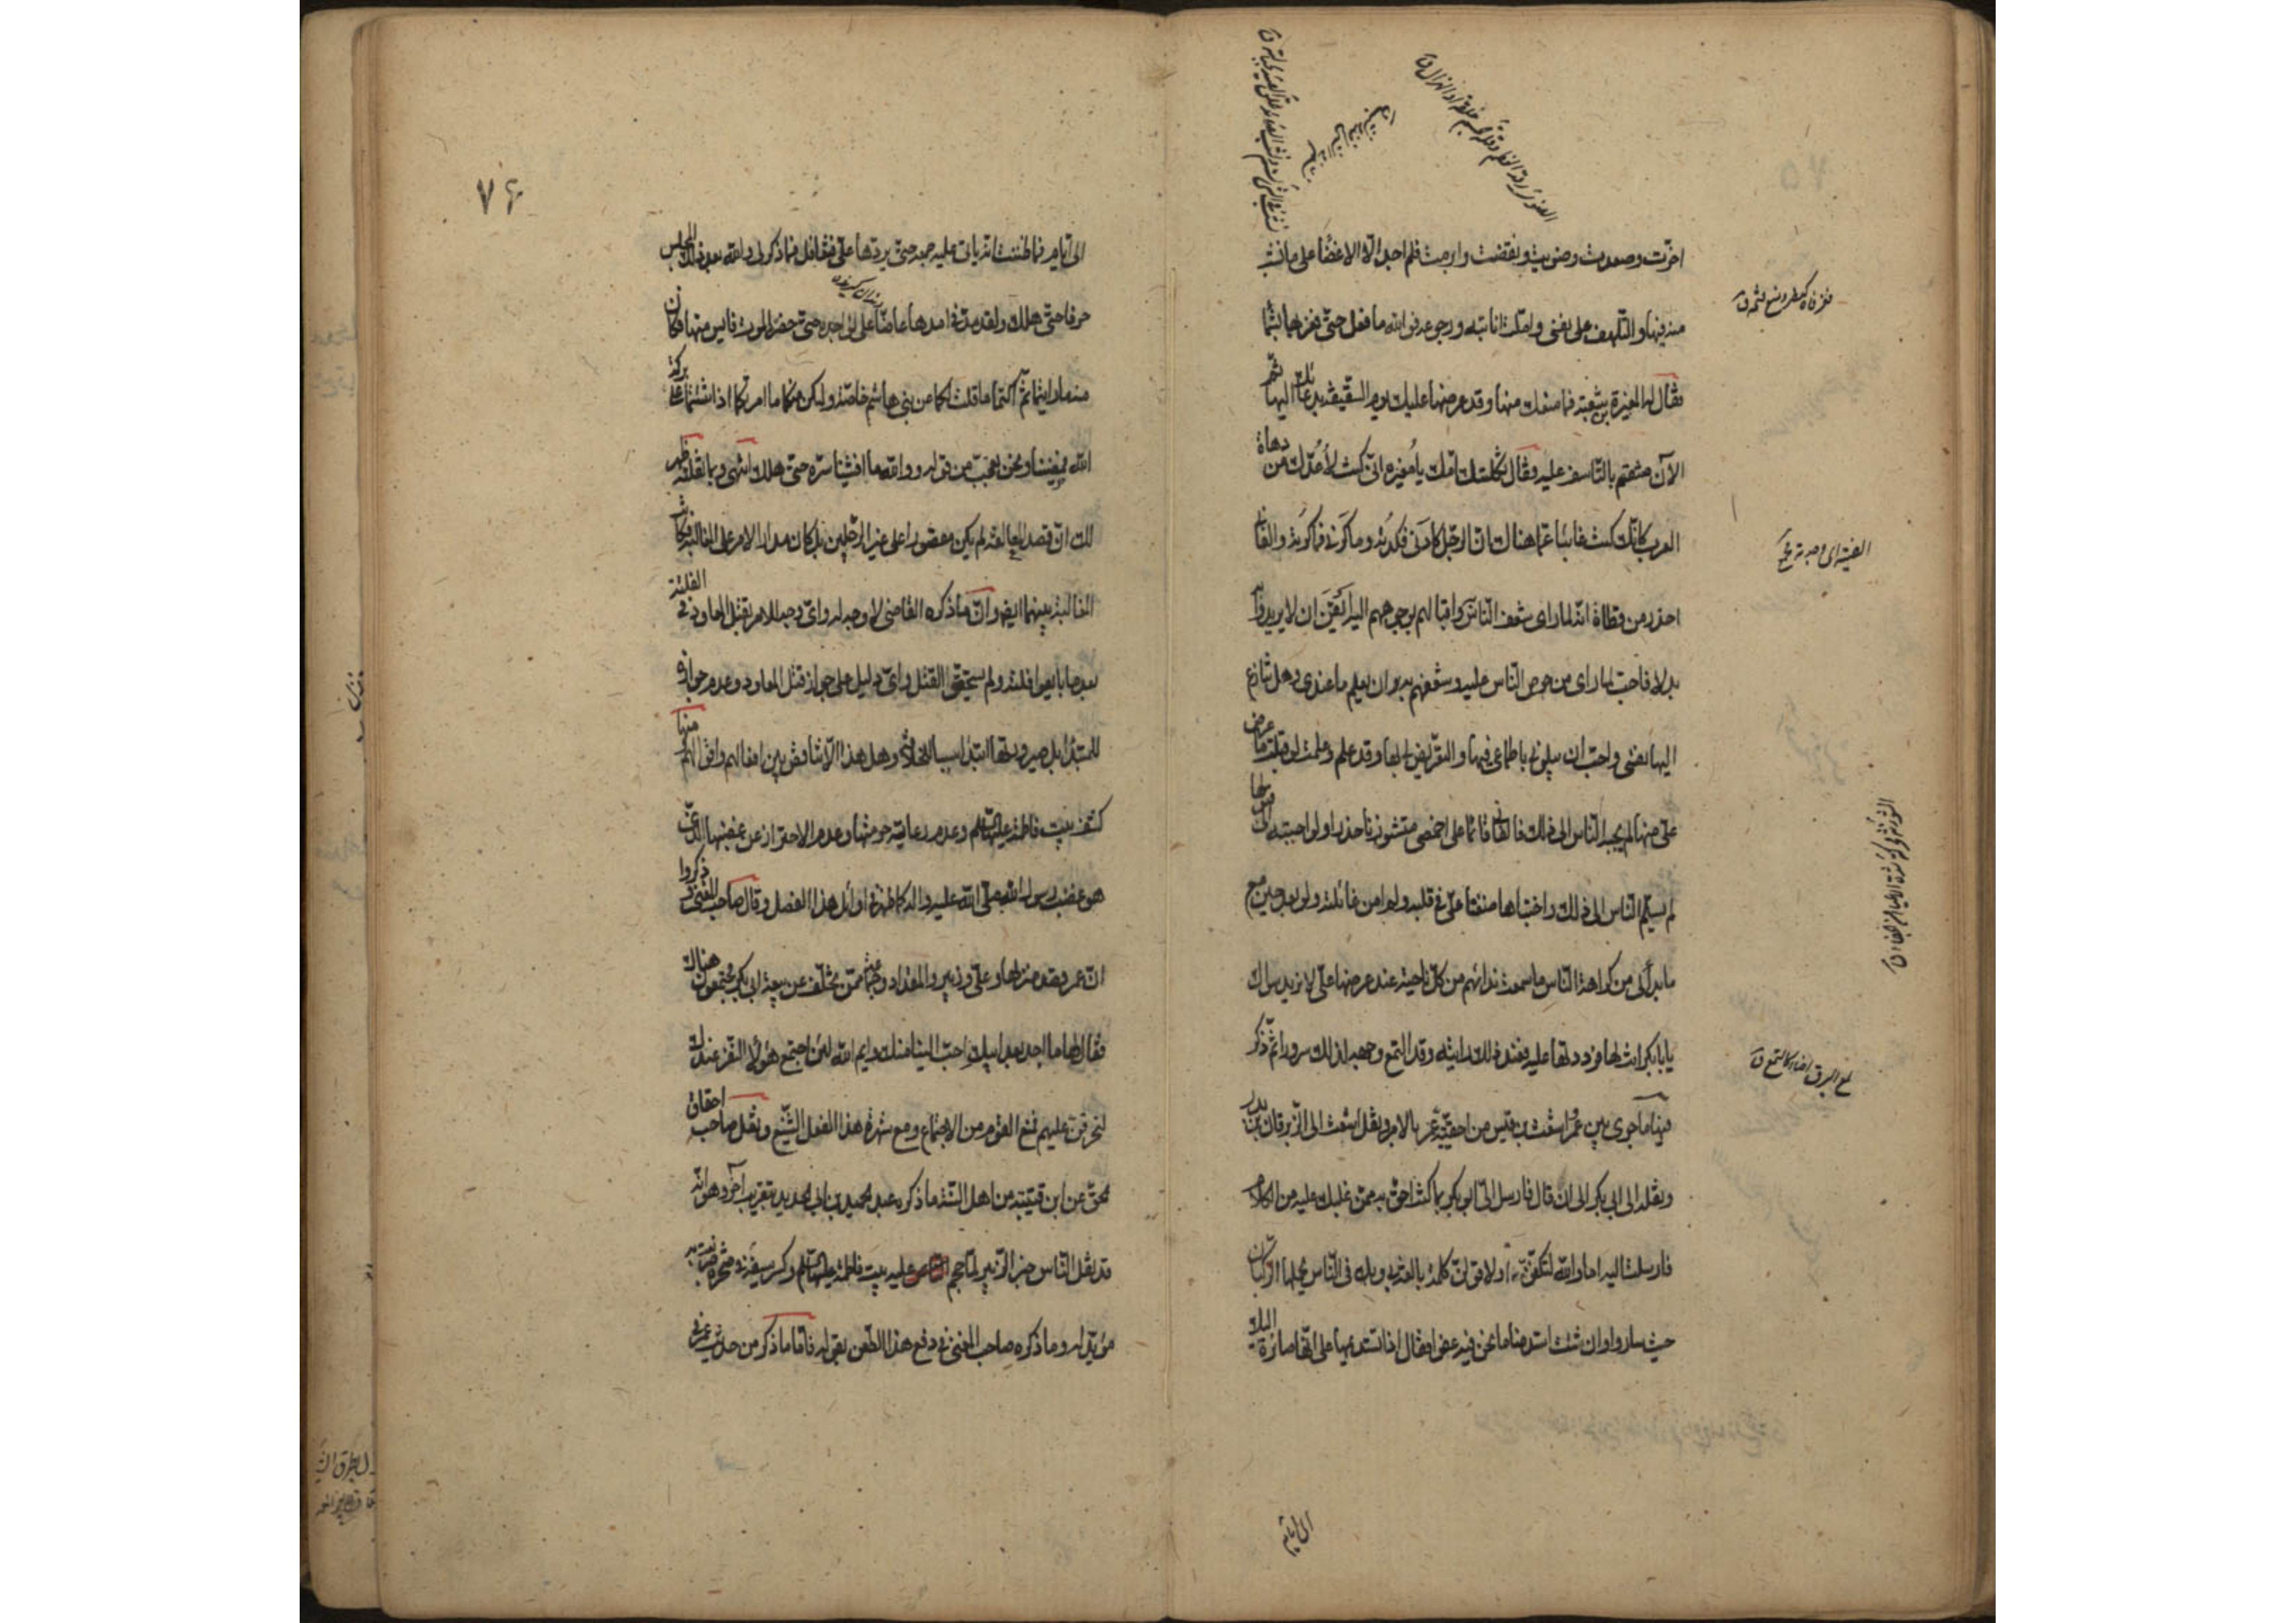 اخّرت وصعدت وصوبت ونقضت وابرمت فلم اجد الّا الاغضاء على ما نشب
منه فيها والتلهف على نفسى واملت انابته ورجوعه فوالله ما فعل حتى فغر بها بشما
فقال له المغيرة بن شعبة فما منعك منها وقد عرضها عليك يوم السقيفة بدعائك اليها ثم
الآن تنقم بالتأسف عليه فقال ثكلتك امّك يا مغيره انى كنت لأعدّك من دهاة
العرب كانّك كنت غائبا عمّا هناك ان الرجل كادنى فكدته وماكرنى فماكرته والفانى
احذر من قطاة انه لما راى شغف الناس به واقبالهم بوجوههم اليه ايقن ان لا يريدوا به
بدلا فاحبّ لما راى من حرص الناس عليه وشغفهم به ان يعلم ما عندى وهل تنازع
اليها نفسى واحبّ ان يبلونى باطماعى فيها والتعريض لى بها وقد علم وعلمت لو قبلت ما عرض
علىّ منها لم يجب الناس الى ذلك فالفانى قائما على اخمصى متشوزنا حذرا ولو اجبته الى قبولها
لم يسلّم الناس الى ذلك واختباها ضغنا علىّ فى قلبه ولم آمن غائلته ولو بعد حين مع
ما بدأ لى من كراهة الناس ما سمعت ندائهم من كل ناحية عند عرضها علىّ لا نريد سواك
يا ابابكر انت لها فرددتها عليه فعند ذلك رايته وقد التمع وجهه لذلك سرورا ثم ذكر
فيما جرى بين عمر واشعث بن قيس من احقيّة عمر بالامر ونقل اشعث الى الزبرقان بن بدر
ونقله الى ابى بكر الى ان قال فارسل الىّ ابو بكر بما كنت احق به ممن غلبك عليه من الكلام
فارسلت اليه اما والله لتكفنّ او لاقولنّ كلمة بالغة بى وبك فى الناس يحملها الركبان
حيث ساروا وان شئت استدمنا ما نحن فيه عفوا فقال اذا نستديمها على انها صائرة اليك
فغر فاه كمنع ونصر فتحه ق
الفيته اى وجدته
لمع البرق اضاء كالتمع ق
الى ايام
٧٦
الى ايام فما ظننت انه ياتى عليه جمعة حتى يردها علىّ فتغافل فما ذكر لى والله بعد ذلك المجلس
حرفا حتى هلك ولقد مدّ فى امدها عاضّا على نواجده حتى حضره الموت فايس منها فكان
منه ما رايتما ثم اكتما ما قلت لكما من بنى هاشم خاصة وليكن منكما ما امرتكما اذا شئتما على بركة
الله فمضينا ونحن نعجب من قوله ووالله ما افشينا سره حتى هلك انتهى وبما نقلنا ظهر
لك ان قصد المغالبة لم يكن مقصورا على غير الرجلين بل كان مدار الامر على المغالبة فكانت
المغالبة بينهما ايضا وانّ ما ذكره القاضى لا وجه له واى وجه للامر بقتل المعاود فى الفلتة
بعد ما بايعوا فلتة ولم يستحق القتل واى دليل على جواز قتل المعاود وعدم جوازه
للمبتدأ بل صيرورتها ابتداء سببا للخلافة وهل هذا الّا تناقض بين افعالهم واقوالهم منها
كشف بيت فاطمة عليها السلام وعدم رعاية حرمتها وعدم الاحتراز عن غضبها الذى
هو غضب رسول الله صلى الله عليه وآله كما ظهر فى اوائل هذا الفصل وقال صاحب المغنى ذكروا
ان عمر قصد منزلها وعلىّ وزبير والمقداد وجماعة ممن تخلّف عن بيعة ابى بكر مجتمعون هناك
فقال لها ما احد بعد ابيك احبّ الينا منك وايم الله لئن اجتمع هؤلاء النفر عندك
لنحرقن عليهم فمنع القوم من الاجتماع ومع شهرة هذا الفعل الشنيع ونقل صاحب احقاق
الحق عن ابن قتيبة من اهل السنة ما ذكره عبد الحميد بن ابى الحديد بتقريب آخر وهو انّه
قد نقل الناس خبر الزبير لمّا هجم عليه ببيت فاطمة عليها السلام وكسر سيفه فى صخرة ضربت به
مؤيد له وما ذكره صاحب المغنى فى دفع هذا الطعن بقوله فامّا ما ذكر من حديث عمر فى